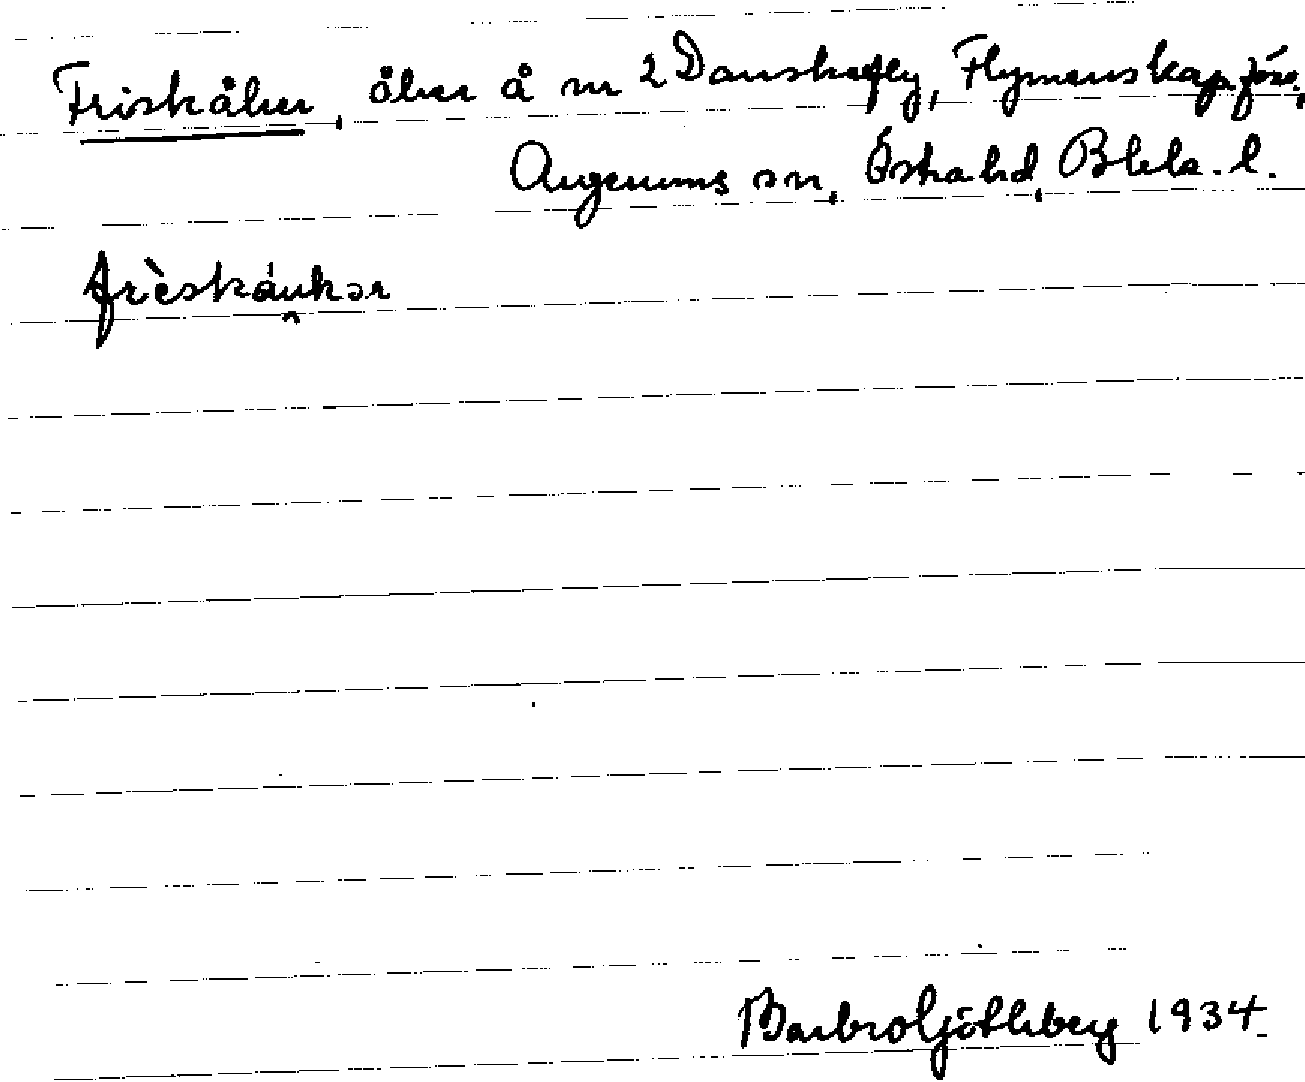 Friskåker, åker å nr 2 Danskefly, Flymenskap. förs.,
Augerums sn, Östra hd, Blek. l.
frèskáukər
Barbro Götheberg 1934